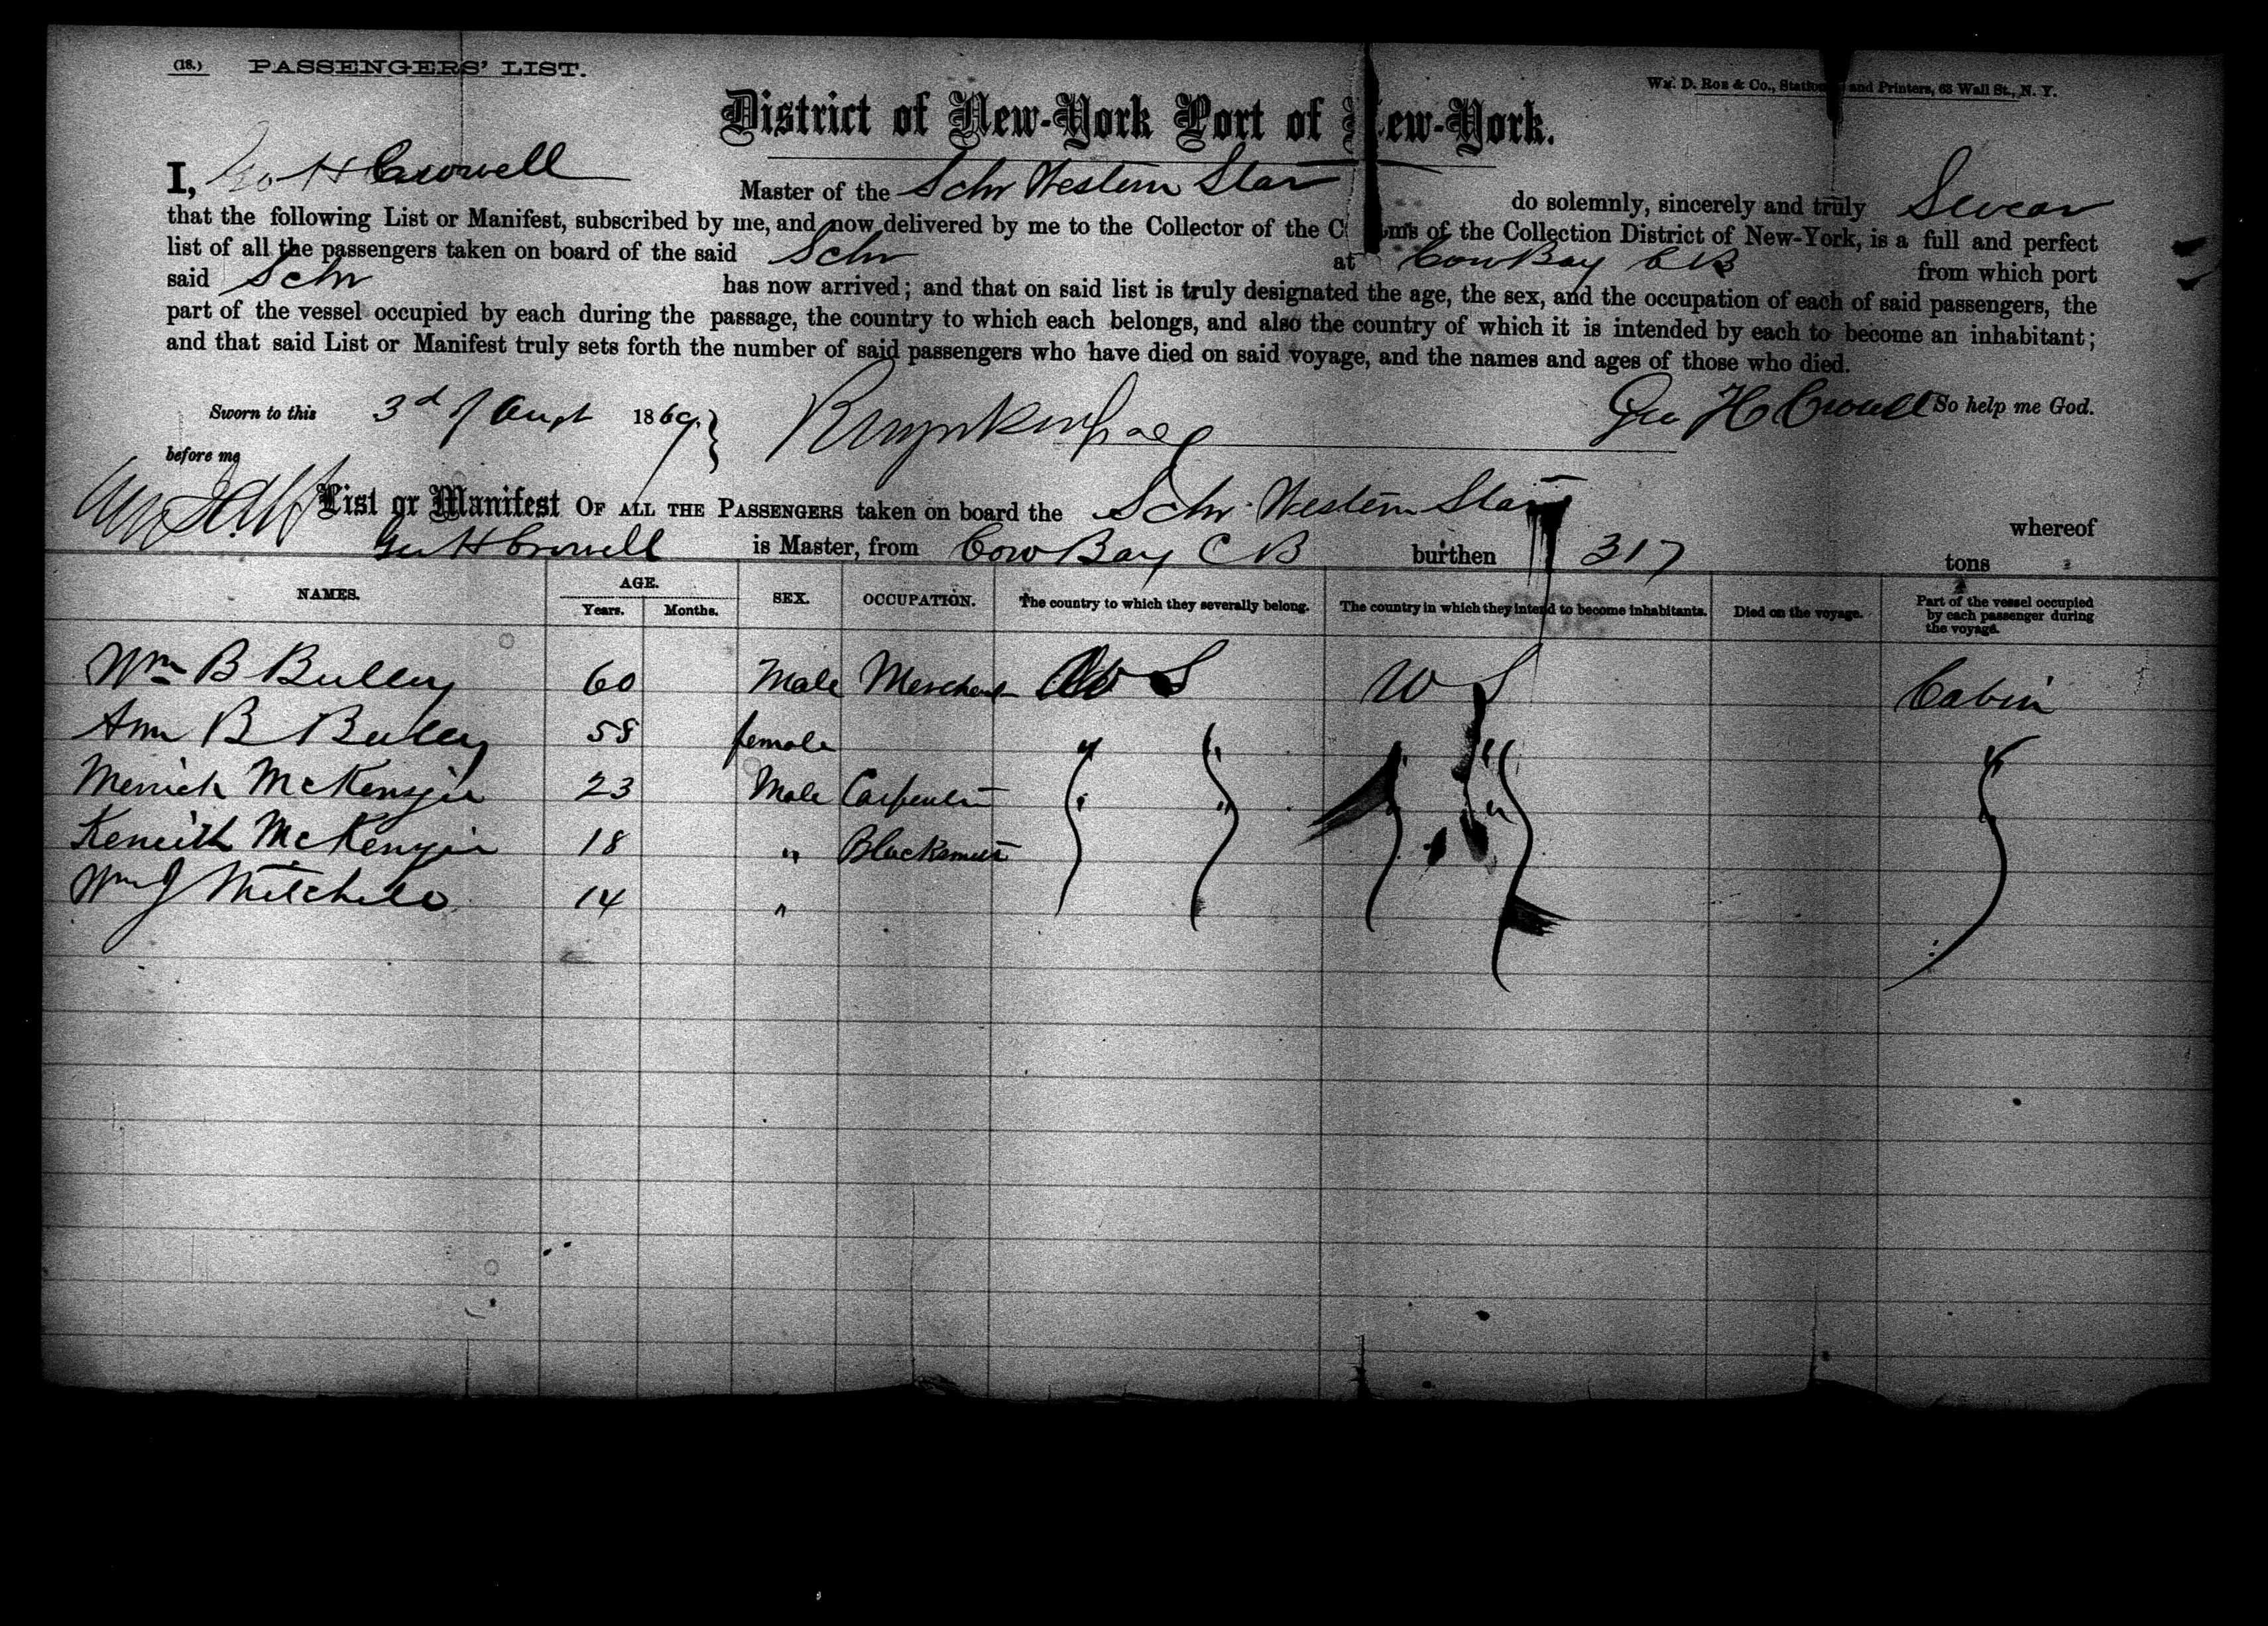 (18.) PASSENGERS' LIST.
Wm. D. Roe & Co., Station and Printers, 63 Wall St., N. Y.
District of New-York Port of New-York.
I, Geo H Crowell Master of the Schr Western Star do solemnly, sincerely and truly Swear
that the following List or Manifest, subscribed by me, and now delivered by me to the Collector of the C oms of the Collection District of New-York, is a full and perfect
list of all the passengers taken on board of the said Schr at Cow Bay C B from which port
said Schr has now arrived; and that on said list is truly designated the age, the sex, and the occupation of each of said passengers, the
part of the vessel occupied by each during the passage, the country to which each belongs, and also the country of which it is intended by each to become an inhabitant;
and that said List or Manifest truly sets forth the number of said passengers who have died on said voyage, and the names and ages of those who died.
Sworn to this 3d of Augt 1869. Geo H Crowell So help me God.
before me
List or Manifest OF ALL THE PASSENGERS taken on board the Schr Western Star whereof
Geo H Crowell is Master, from Cow Bay C B burthen 317 tons
NAMES. AGE. SEX. OCCUPATION. The country to which they severally belong. The country in which they intend to become inhabitants. Died on the voyage. Part of the vessel occupied by each passenger during the voyage.
Years. Months.
Wm B Bulley 60 Male Merchant U S U S Cabin
Ann B Bulley 58 female " " " " "
Merrick McKenzie 23 Male Carpenter " " "
Keneith McKenzie 18 " Blacksmith
Wm J Mitchell 14 "